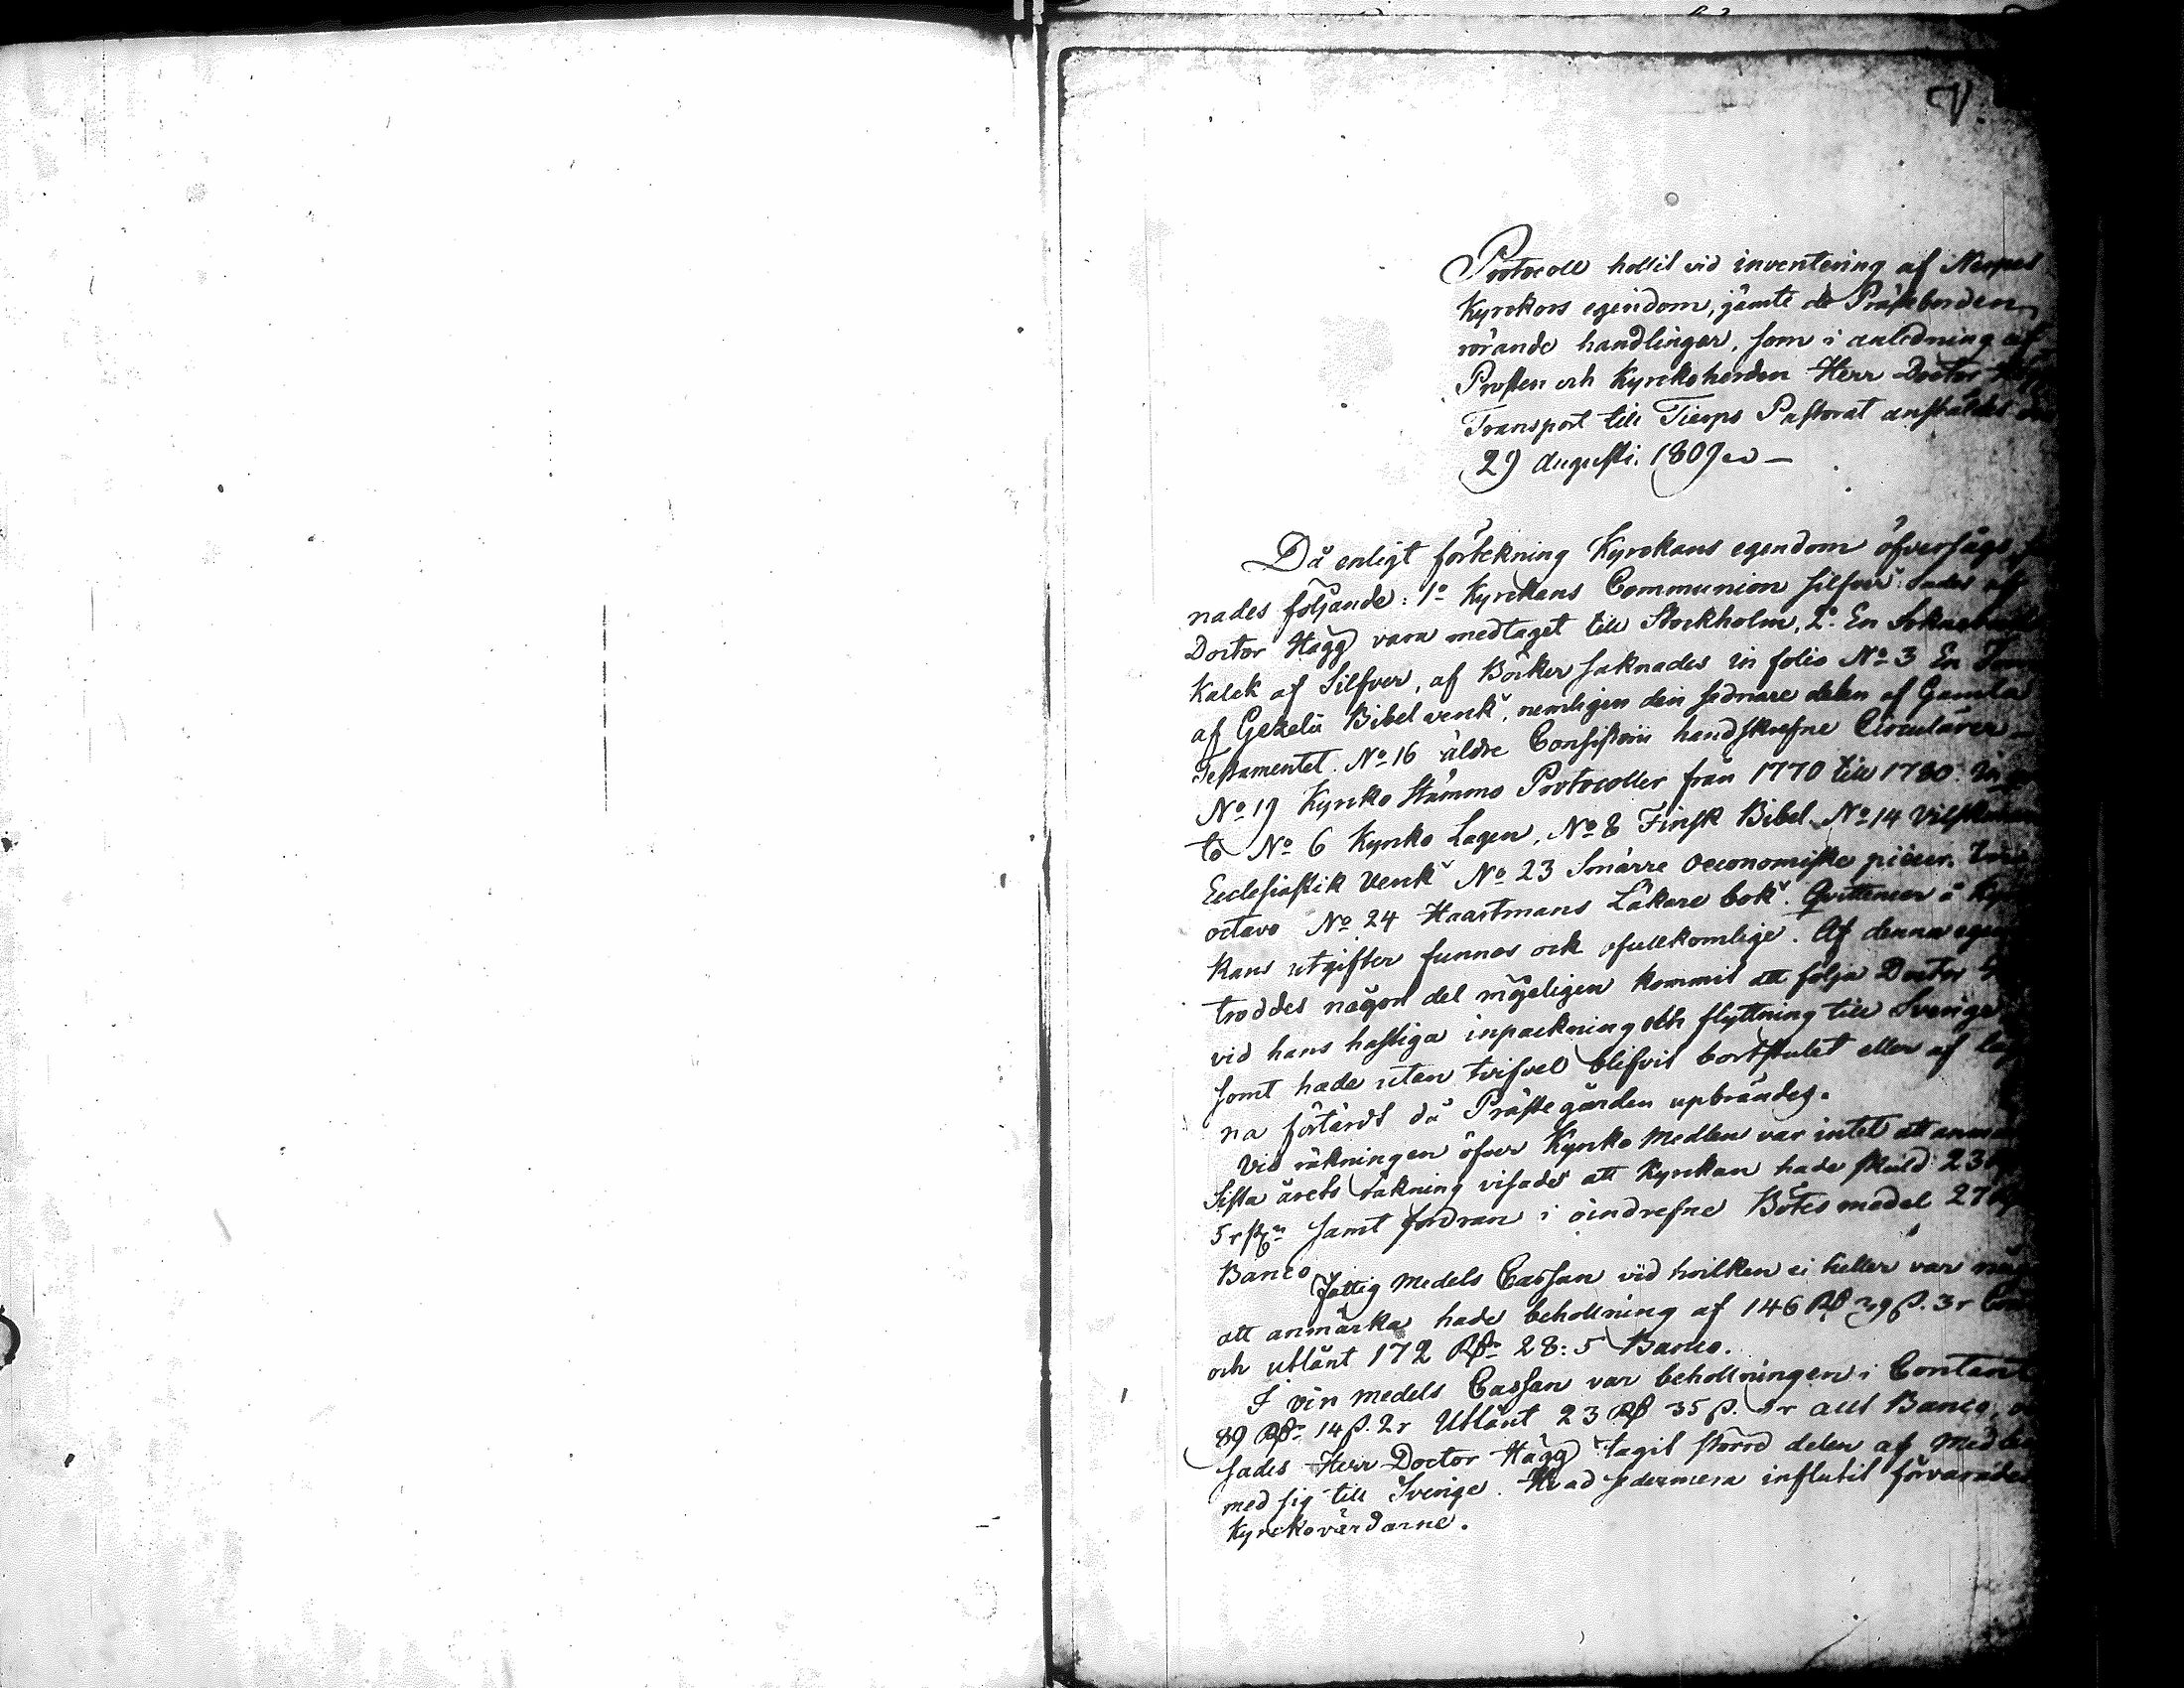 Protocoll hollit vid inventering af Nerpes
Kyrckors egendom, jämte de Prästeborden
rörande handlingar, som i anledning af
Prosten och Kyrckoherden Herr Doctor
Transport till Tierps Pastorat anstäldes
29 Augusti. 1809
Då enligt förtekning Kyrckans egendom öfversågs,
nades följande: 1o Kyrckans Communion silfver sades af
Doctor Hägg vara medtaget till Stockholm, 2o En
Kalck af Silfver, af Böcker saknades in folio No 3 En
af Gezelii Bibel verck, nemligen den sednare delen af Gamla
Testamentet. No 16 äldre Consistorii handskrefne Circulärer
No 19 Kyrcko Stämmo Protocoller från 1770 till 1780. in
to No 6 Kyrcko Lagen, No 8 Finsk Bibel. No 14
Ecclesiastik Verck No 23 Smärre Oeconomiske piecer. In
octavo No 24 Haartmans Läkare bok. Qvittencer å
kans utgifter funnos ock ofullkomlige. Af denna
troddes någon del möjeligen kommit att följa Doctor
vid hans hastiga inpackning och flyttning till Sverige
somt hade utan tvifvel blifvit bortstulet eller af
na förtärdt då Prästegården upbrändes.
Vid räkningen öfver Kyrko Medlen var intet att
Sista årets räkning visades att Kyrckan hade skuld 23
5 r samt fordran i oindrefne Bötes medel 27
Banco
Fattig Medels Cassan vid hvilken ei heller var
att anmärka hade behollning af 146 Rd 39 ß. 3 r
och utlånt 172 Rd 28: 5 Banco.
I vin medels Cassan var behollningen i Contant
89 Rd 14 ß. 2 r Utlånt 23 Rd 35 ß. r allt Banco,
sades Herr Doctor Hägg tagit större delen af Medlen
med sig till Sverige. Hvad sedermera influtit förvarades
Kyrckovärdarne.